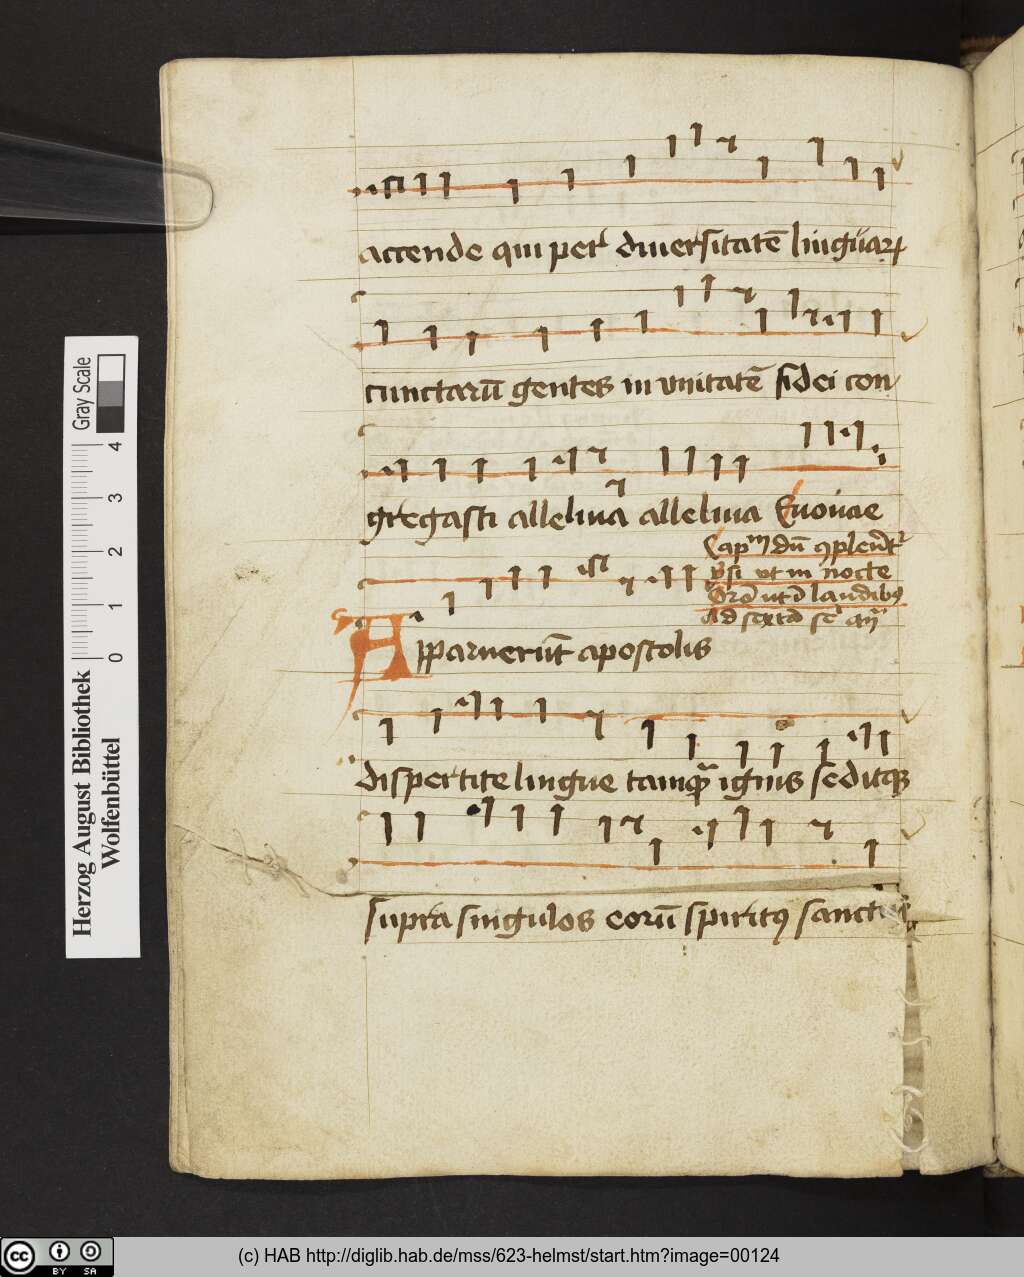 accende qui per diuersitatē linguaꝝ
cunctarū gentes in vnitatē fidei con
gregasti alleluia alleluia Euouae
Capm dn̄ ꝯplent᷑
vsi vt in nocte
Ord ut d laudibꝰ
Ad sextā sc an̄
Apparuerūt apostolis
dispertite lingue tamqͣ ignis seditqꝫ
supra singulos eorū spiritꝰ sanctꝰ
Gray Scale
0 1 2 3 4
Herzog August Bibliothek
Wolfenbüttel
cc BY SA
(c) HAB http://diglib.hab.de/mss/623-helmst/start.htm?image=00124